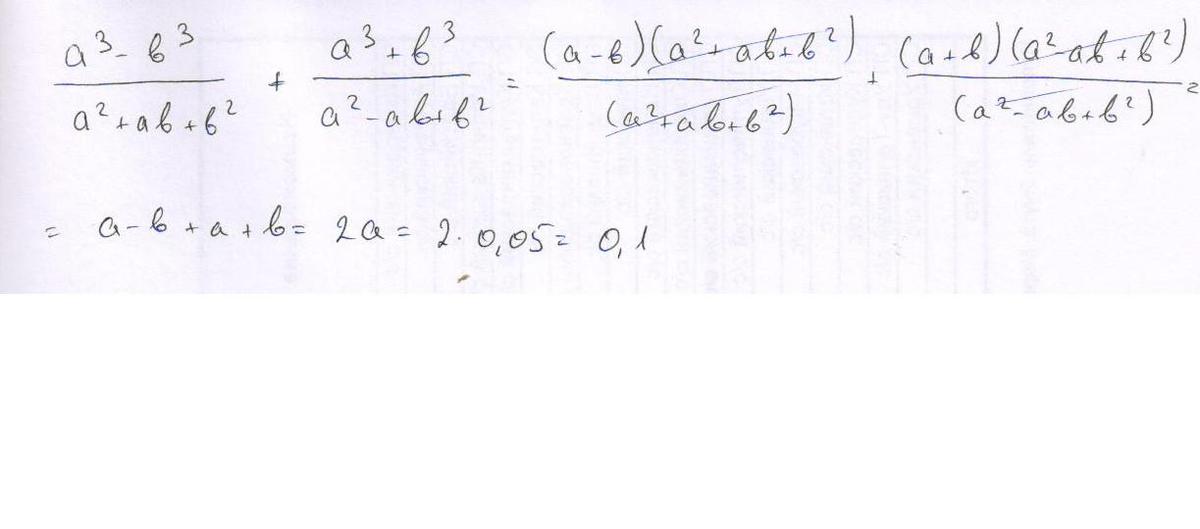 (a³ - b³)/(a² + ab + b²) + (a³ + b³)/(a² - ab + b²) = (a - b)(a² + ab + b²)/(a² + ab + b²) + (a + b)(a² - ab + b²)/(a² - ab + b²) =
= a - b + a + b = 2a = 2 · 0,05 = 0,1